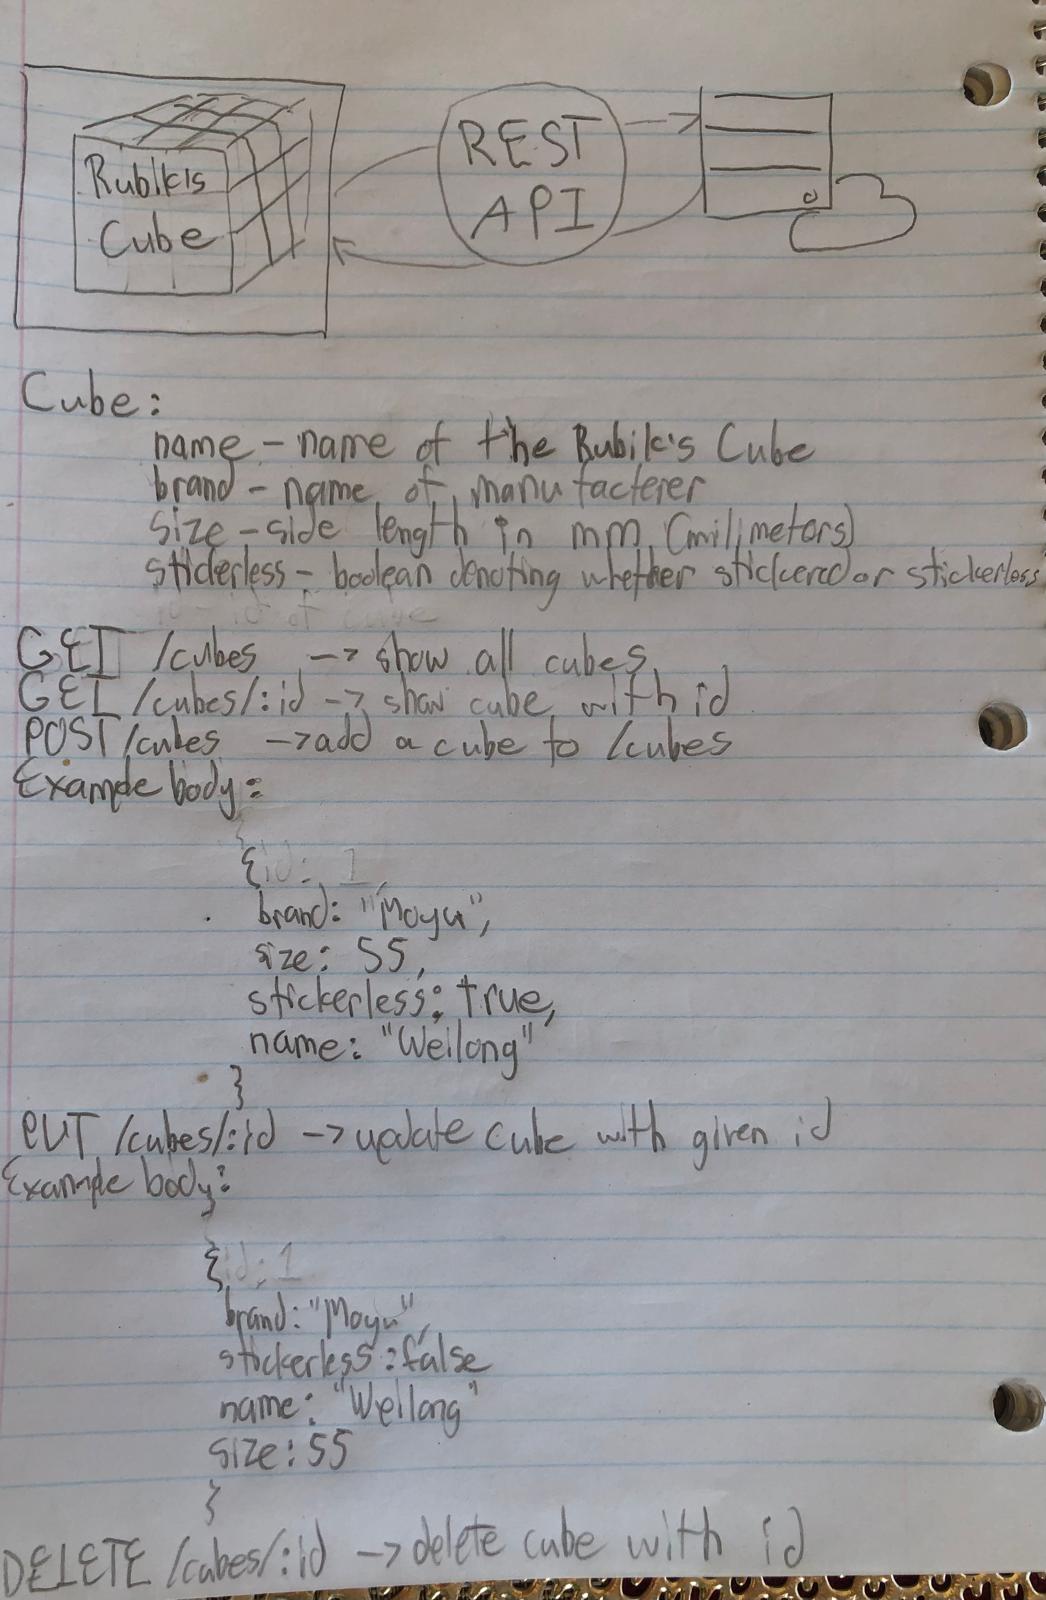 Rubik's
Cube
REST
API
Cube:
name - name of the Rubik's Cube
brand - name of manufacterer
size - side length in mm (milimeters)
stickerless - boolean denoting whether stickered or stickerless
id - id of cube
GET /cubes -> show all cubes
GET /cubes/:id -> show cube with id
POST /cubes -> add a cube to /cubes
Example body:
{id: 1,
brand: "Moyu",
size: 55,
stickerless: true,
name: "Weilong"
}
PUT /cubes/:id -> update cube with given id
Example body:
{id: 1
brand: "Moyu",
stickerless: false
name: "Weilong"
size: 55
}
DELETE /cubes/:id -> delete cube with id